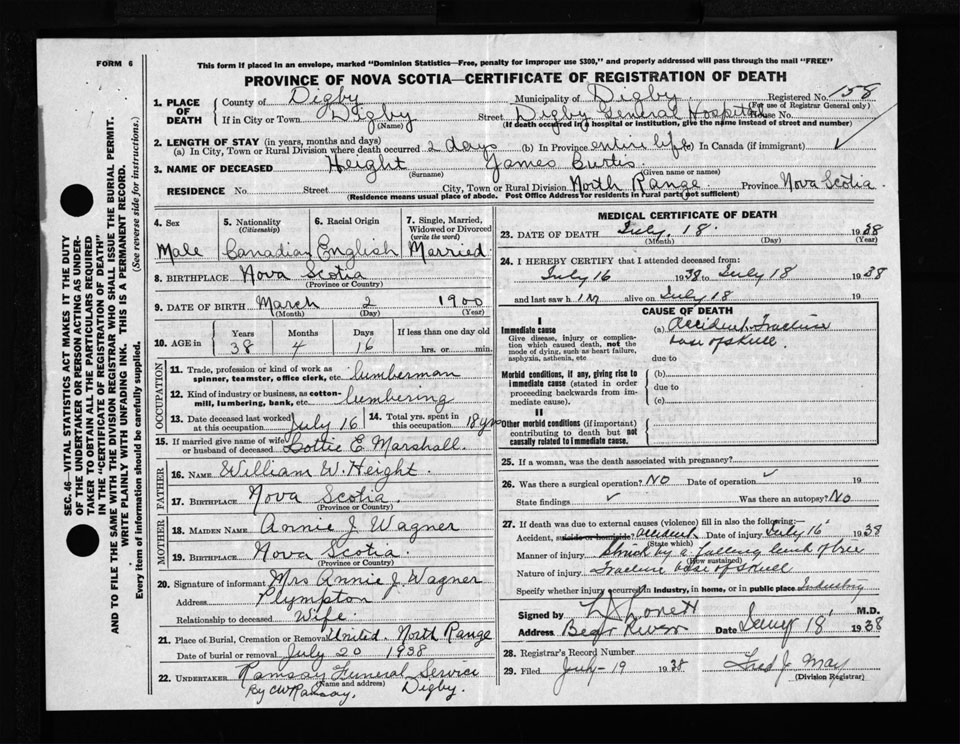 FORM 6
This form if placed in an envelope, marked "Dominion Statistics—Free, penalty for improper use $300," and properly addressed will pass through the mail "FREE"
PROVINCE OF NOVA SCOTIA—CERTIFICATE OF REGISTRATION OF DEATH
SEC. 46—VITAL STATISTICS ACT MAKES IT THE DUTY
OF THE UNDERTAKER OR PERSON ACTING AS UNDER-
TAKER TO OBTAIN ALL THE PARTICULARS REQUIRED
IN THE "CERTIFICATE OF REGISTRATION OF DEATH"
AND TO FILE THE SAME WITH THE DIVISION REGISTRAR WHO SHALL ISSUE THE BURIAL PERMIT.
WRITE PLAINLY WITH UNFADING INK. THIS IS A PERMANENT RECORD.
Every item of information should be carefully supplied. (See reverse side for instructions.)
1. PLACE OF DEATH
County of Digby Municipality of Digby Registered No. 158
(For use of Registrar General only)
If in City or Town Digby Street Digby General Hospital House No.
(Name) (If death occurred in a hospital or institution, give the name instead of street and number)
2. LENGTH OF STAY (in years, months and days)
(a) In City, Town or Rural Division where death occurred 2 days (b) In Province entire life (c) In Canada (if immigrant) ✓
3. NAME OF DECEASED Height James Burtis
(Surname) (Given name or names)
RESIDENCE No Street City, Town or Rural Division North Range Province Nova Scotia
(Residence means usual place of abode. Post Office Address for residents in rural parts not sufficient)
4. Sex
Male
5. Nationality
(Citizenship)
Canadian
6. Racial Origin
English
7. Single, Married,
Widowed or Divorced
(write the word)
Married
8. BIRTHPLACE Nova Scotia
(Province or Country)
9. DATE OF BIRTH March 2 1900
(Month) (Day) (Year)
10. AGE in
Years Months Days If less than one day old
38 4 16 hrs. or min.
OCCUPATION
11. Trade, profession or kind of work as
spinner, teamster, office clerk, etc lumberman
12. Kind of industry or business, as cotton-
mill, lumbering, bank, etc lumbering
13. Date deceased last worked
at this occupation July 16
14. Total yrs. spent in
this occupation 18 yrs
15. If married give name of wife
or husband of deceased Lottie E Marshall
FATHER
16. NAME William W. Height
17. BIRTHPLACE Nova Scotia
(Province or Country)
MOTHER
18. MAIDEN NAME Annie J Wagner
19. BIRTHPLACE Nova Scotia
(Province or Country)
20. Signature of informant Mrs Annie J. Wagner
Address Plympton
Relationship to deceased Wife
21. Place of Burial, Cremation or Removal United. North Range
Date of burial or removal July 20 1938
22. UNDERTAKER Ramsay Funeral Service
(Name and address)
By CW Ramsay, Digby.
MEDICAL CERTIFICATE OF DEATH
23. DATE OF DEATH July 18 1938
(Month) (Day) (Year)
24. I HEREBY CERTIFY that I attended deceased from:
July 16 1938 to July 18 1938
and last saw him alive on July 18 19
CAUSE OF DEATH
I
Immediate cause
Give disease, injury or complica-
tion which caused death, not the
mode of dying, such as heart failure,
asphyxia, asthenia, etc
(a) Accident. Fracture
base of skull
due to
Morbid conditions, if any, giving rise to
immediate cause (stated in order
proceeding backwards from im-
mediate cause).
(b)
due to
(c)
II
Other morbid conditions (if important)
contributing to death but not
causally related to immediate cause.
25. If a woman, was the death associated with pregnancy?
26. Was there a surgical operation? NO Date of operation ✓ 19
State findings ✓ Was there an autopsy? No
27. If death was due to external causes (violence) fill in also the following:—
Accident, suicide or homicide? accident Date of injury July 16 1938
(State which)
Manner of injury Struck by a falling limb of tree
(How sustained)
Nature of injury Fracture base of skull
Specify whether injury occurred in industry, in home, or in public place Industry
Signed by M.D.
Address Bear River Date 18 1938
28. Registrar's Record Number
29. Filed July 19 1938 Fred J. May
(Division Registrar)